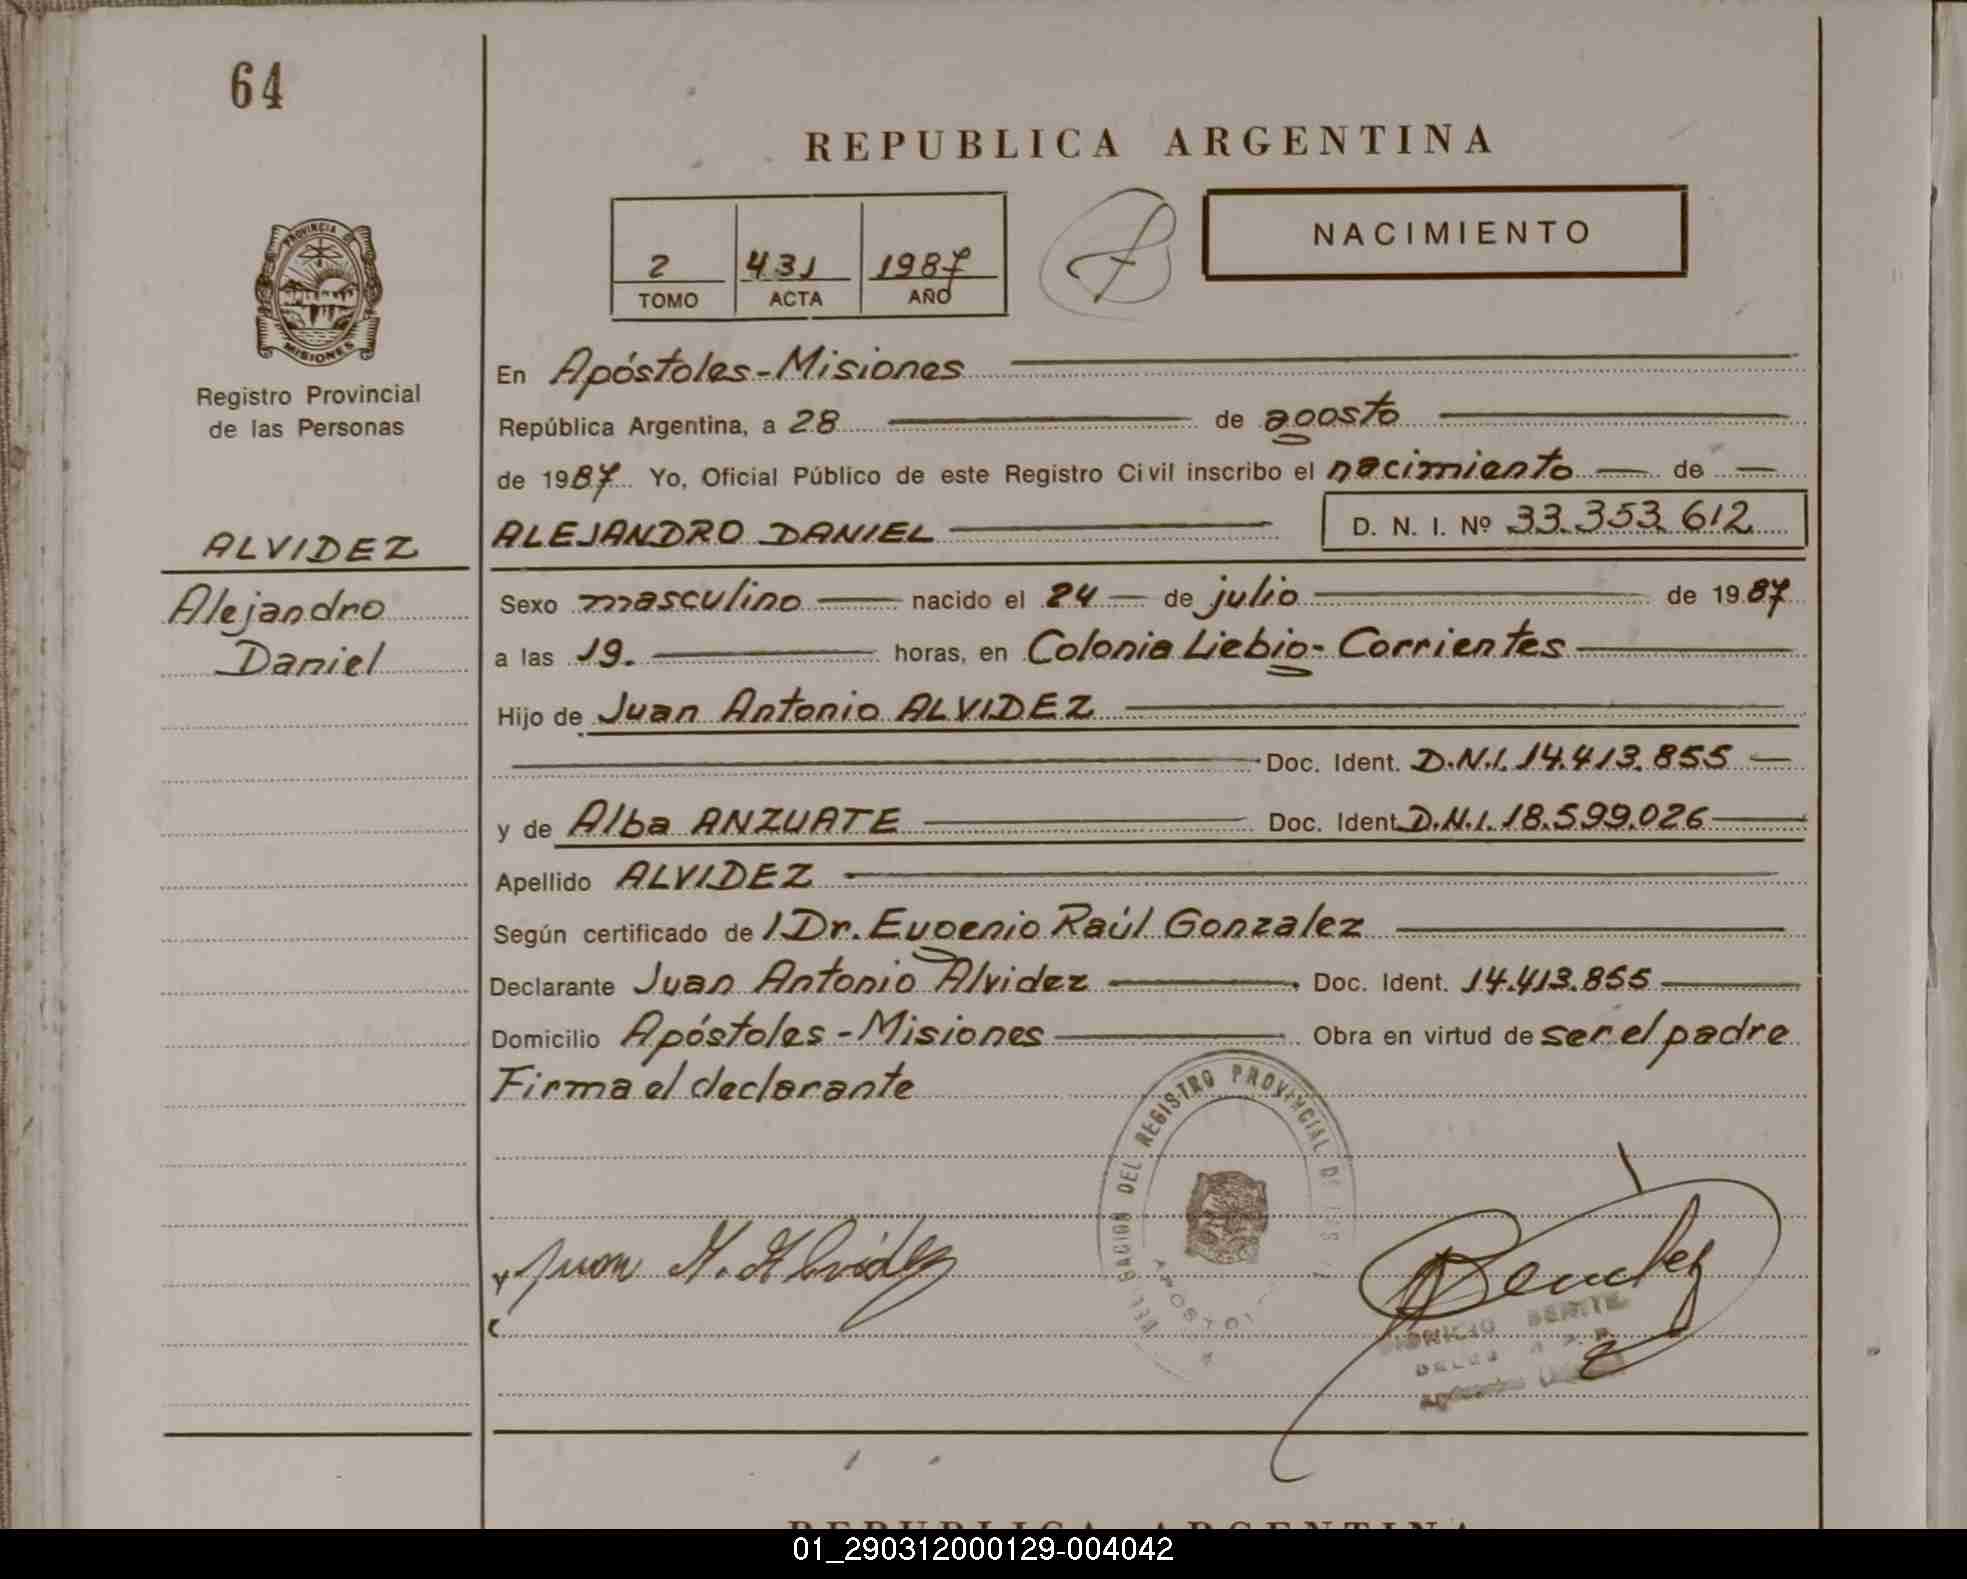 64
REPUBLICA ARGENTINA
PROVINCIA DE
MISIONES
Registro Provincial
de las Personas
2 431 1987
TOMO ACTA AÑO
NACIMIENTO
En Apóstoles-Misiones
República Argentina, a 28 de agosto
de 1987 Yo, Oficial Público de este Registro Civil inscribo el nacimiento de
ALVIDEZ
Alejandro
Daniel
ALEJANDRO DANIEL D. N. I. Nº 33.353.612
Sexo masculino nacido el 24 de julio de 1987
a las 19. horas, en Colonia Liebig- Corrientes
Hijo de Juan Antonio ALVIDEZ
Doc. Ident. D.N.I. 14.413.855
y de Alba ANZUATE Doc. Ident. D.N.I. 18.599.026
Apellido ALVIDEZ
Según certificado de l Dr. Eugenio Raúl Gonzalez
Declarante Juan Antonio Alvidez Doc. Ident. 14.413.855
Domicilio Apóstoles-Misiones Obra en virtud de ser el padre
Firma el declarante
DELEGACION DEL REGISTRO PROVINCIAL DE
Juan A. Alvidez
REPUBLICA ARGENTINA
01_290312000129-004042